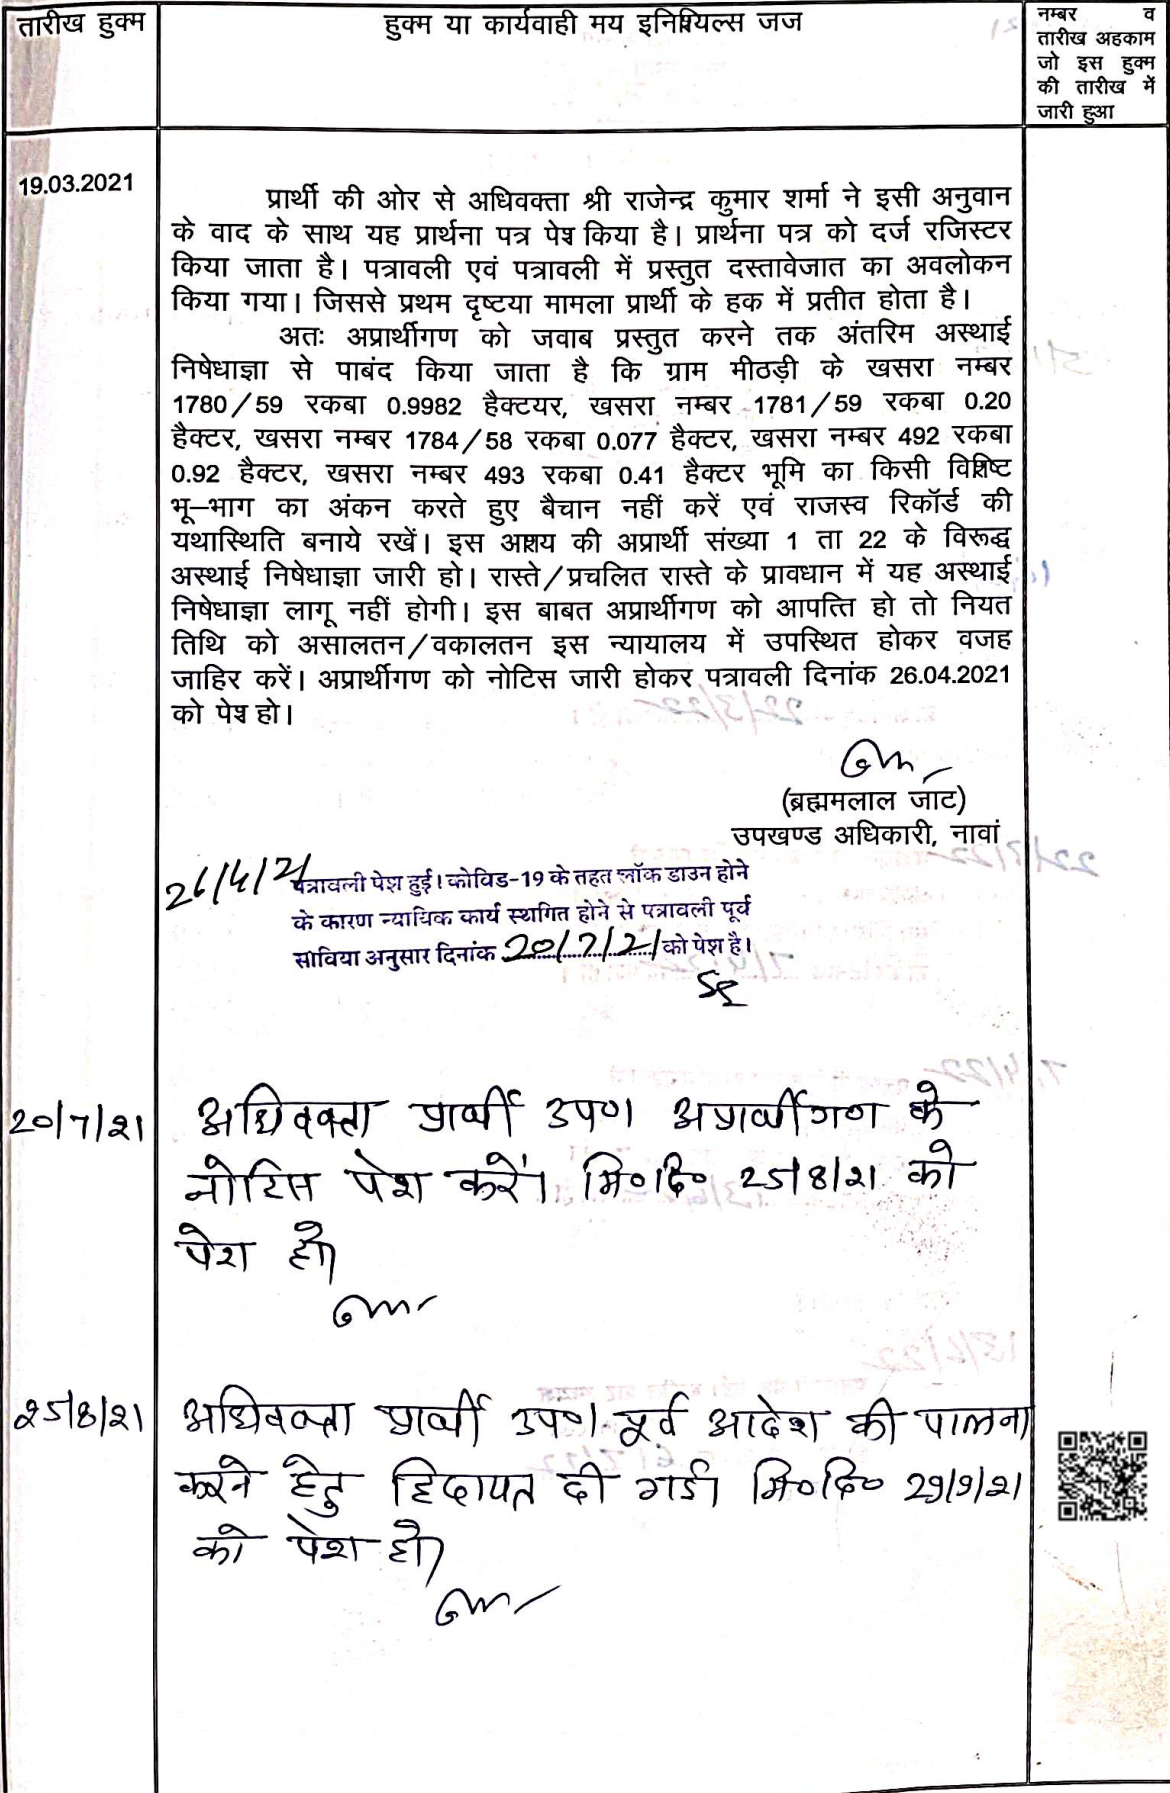 तारीख हुक्म
हुक्म या कार्यवाही मय इनिशियल्स जज
नम्बर व
तारीख अहकाम
जो इस हुक्म
की तारीख में
जारी हुआ
19.03.2021
प्रार्थी की ओर से अधिवक्ता श्री राजेन्द्र कुमार शर्मा ने इसी अनुवान
के वाद के साथ यह प्रार्थना पत्र पेश किया है। प्रार्थना पत्र को दर्ज रजिस्टर
किया जाता है। पत्रावली एवं पत्रावली में प्रस्तुत दस्तावेजात का अवलोकन
किया गया। जिससे प्रथम दृष्टया मामला प्रार्थी के हक में प्रतीत होता है।
अतः अप्रार्थीगण को जवाब प्रस्तुत करने तक अंतरिम अस्थाई
निषेधाज्ञा से पाबंद किया जाता है कि ग्राम मीठड़ी के खसरा नम्बर
1780/59 रकबा 0.9982 हैक्टयर, खसरा नम्बर 1781/59 रकबा 0.20
हैक्टर, खसरा नम्बर 1784/58 रकबा 0.077 हैक्टर, खसरा नम्बर 492 रकबा
0.92 हैक्टर, खसरा नम्बर 493 रकबा 0.41 हैक्टर भूमि का किसी विशिष्ट
भू–भाग का अंकन करते हुए बैचान नहीं करें एवं राजस्व रिकॉर्ड की
यथास्थिति बनाये रखें। इस आशय की अप्रार्थी संख्या 1 ता 22 के विरूद्ध
अस्थाई निषेधाज्ञा जारी हो। रास्ते/प्रचलित रास्ते के प्रावधान में यह अस्थाई
निषेधाज्ञा लागू नहीं होगी। इस बाबत अप्रार्थीगण को आपत्ति हो तो नियत
तिथि को असालतन/वकालतन इस न्यायालय में उपस्थित होकर वजह
जाहिर करें। अप्रार्थीगण को नोटिस जारी होकर पत्रावली दिनांक 26.04.2021
को पेश हो।
(ब्रह्ममलाल जाट)
उपखण्ड अधिकारी, नावां
26/4/21 पत्रावली पेश हुई। कोविड-19 के तहत लॉक डाउन होने
के कारण न्यायिक कार्य स्थगित होने से पत्रावली पूर्व
साविया अनुसार दिनांक 20/7/21 को पेश है।
20/7/21 अधिवक्ता प्रार्थी उप०। अप्रार्थीगण के
नोटिस पेश करें। मि०दि० 25/8/21 को
पेश हो।
25/8/21 अधिवक्ता प्रार्थी उप०। पूर्व आदेश की पालना
करने हेतु हिदायत दी गई। मि०दि० 29/9/21
को पेश हो।